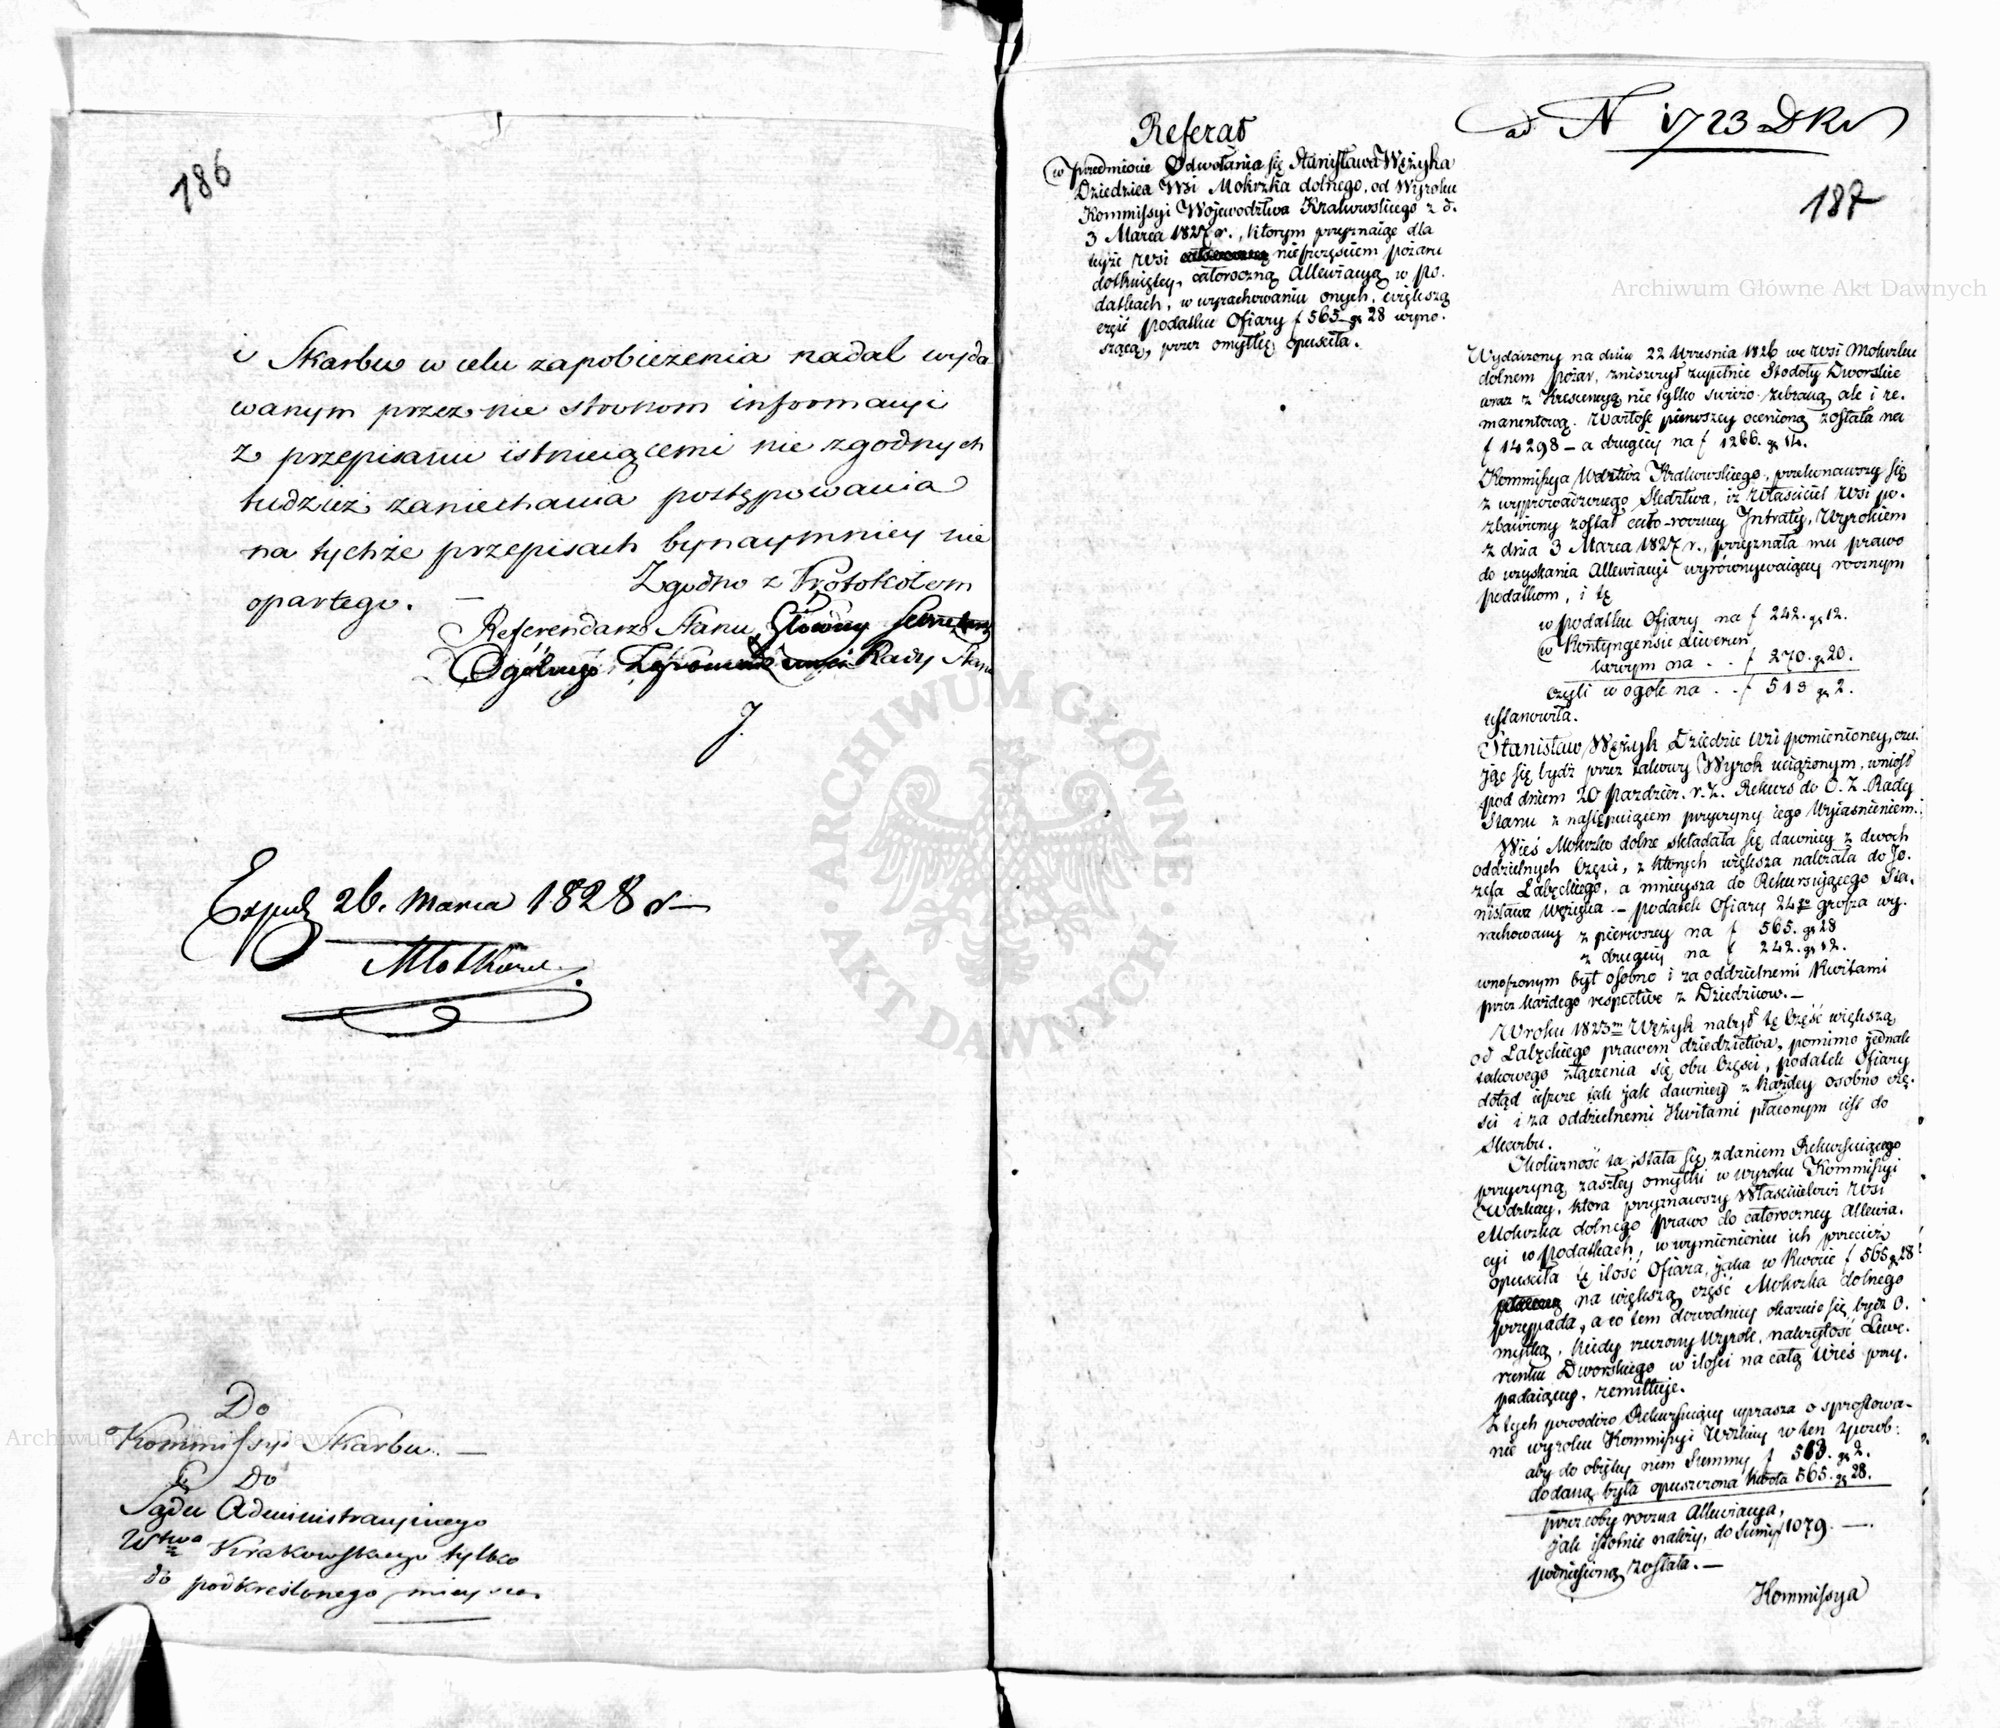 186
i Skarbu w celu zapobieżenia nadal wyda
wanym przez nie stronom informacyi
z przepisami istnieiącemi nie zgodnych
tudzież zaniechania postępowania
na tychże przepisach bynaymniey nie
opartego. —
Zgodno z Protokołem
Referendarz Stanu, Główny Sekretarz
Ogólnego Zgromadzenia Rady Stanu
J.
Exped 26. Marca 1828 r —
Do
Kommissyi Skarbu. —
Do
Sądu Administracyinego
Wztwa Krakowskiego tylko
do podkreślonego mieysca
Referat
w przedmiocie Odwołania się Stanisława Wężyka
Dziedzica Wsi Mokrzka dolnego, od Wyroku
Kommissyi Województwa Krakowskiego z d.
3 Marca 1827 r., którym przyznaiąc dla
teyże wsi nieszczęściem pożaru
dotkniętey, całoroczną Allewiacyą w po-
datkach, w wyrachowaniu onych, większą
część podatku Ofiary f 565 gr 28 wyno-
szącą, przez omyłkę opuściła.
ad N 1723 DKs
187
Wydarzony na dniu 22 Września 1826 we wsi Mokrzku
dolnem pożar, zniszczył zupełnie Stodoły Dworskie
wraz z Krescencyą nie tylko świeżo zebraną ale i re-
manentową. Wartość pierwszey ocenioną została na
f 14298 – a drugiey na f 1266. gr 14.
Kommissya Wdztwa Krakowskiego, przekonawszy się
z wyprowadzonego Śledztwa, iż właściciel wsi po-
zbawiony został cało-roczney Intraty, Wyrokiem
z dnia 3 Marca 1827 r., przyznała mu prawo
do uzyskania Allewiacyi wyrównywaiącey rocznym
podatkom, i tę
w podatku Ofiary na f 242. gr 12.
w Kontyngensie Liwerun
kowym na . . f 270. gr 20.
czyli w ogóle na . . f 513 gr 2.
ustanowiła.
Stanisław Wężyk Dziedzic wsi pomienioney, czu-
jąc się bydź przez takowy Wyrok uciążonym, wniósł
pod dniem 20 Paździer. r. z. Rekurs do O. Z. Rady
Stanu z następuiącem przyczyny iego Wyiaśnieniem.
Wieś Mokrzko dolne składała się dawniey z dwóch
oddzielnych Części, z których większa należała do Jó-
zefa Łabęckiego, a mnieysza do Rekursuiącego Sta-
nisława Wężyka – podatek Ofiary 24go grosza wy-
rachowany z pierwszey na f 565. gr 28
z drugiey na f 242. gr 12.
wnoszonym był osobno i za oddzielnemi Kwitami
przez każdego respective z Dziedziców. —
W roku 1823m Wężyk nabył tę Część większą
od Łabęckiego prawem dziedzictwa, pomimo jednak
takowego złączenia się obu Części, podatek Ofiary
dotąd ieszcze tak jak dawniey z każdey osobno czę-
ści i za oddzielnemi Kwitami płaconym iest do
Skarbu.
Okoliczność ta, stała się, zdaniem Rekursuiącego
przyczyną zaszłey omyłki w wyroku Kommissyi
Wdzkiey, która przyznawszy Właścicielowi wsi
Mokrzka dolnego prawo do całoroczney Allewia-
cyi w podatkach, w wymienieniu ich przecież
opuściła tę ilość Ofiara, jaka w kwocie f 565 gr 28
na większą część Mokrzka dolnego
przypada, a co tem dowodniey okazuie się bydź o-
myłką, kiedy rzeczony Wyrok, należytość Liwe-
runku Dworskiego w ilości na całą Wieś przy-
padaiącey, remittuje.
Z tych powodów Rekursuiący uprasza o sprostowa-
nie wyroku Kommissyi Wdzkiey w ten sposób:
aby do obiętey nim Summy f 513. gr 2.
dodaną była opuszczona kwota 565. gr 28.
przez coby roczna Allewiacya,
jak istotnie należy, do Summy 1079. —.
podniesioną została. —
Kommissya